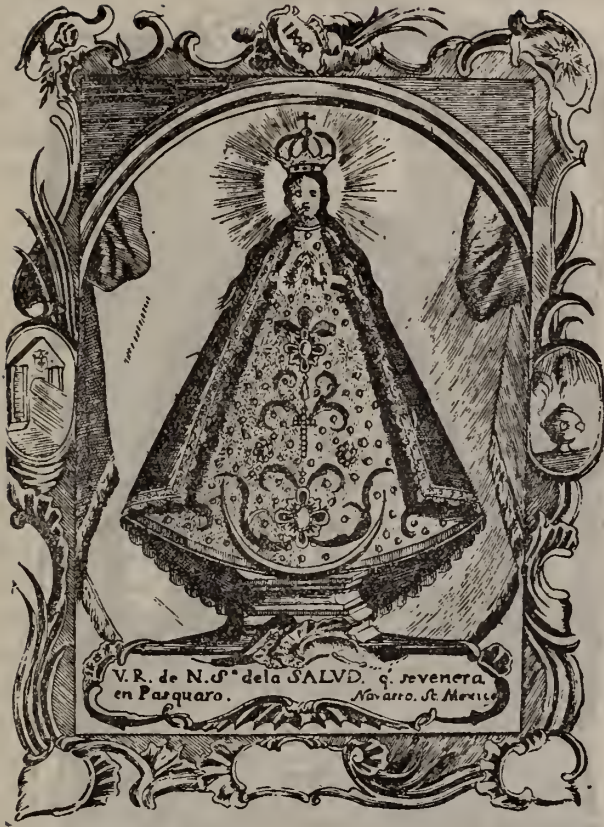 V. R. de N. Sª. dela SALVD. q̃. sevenera
en Pasquaro. Navarro. Sc. Mexico